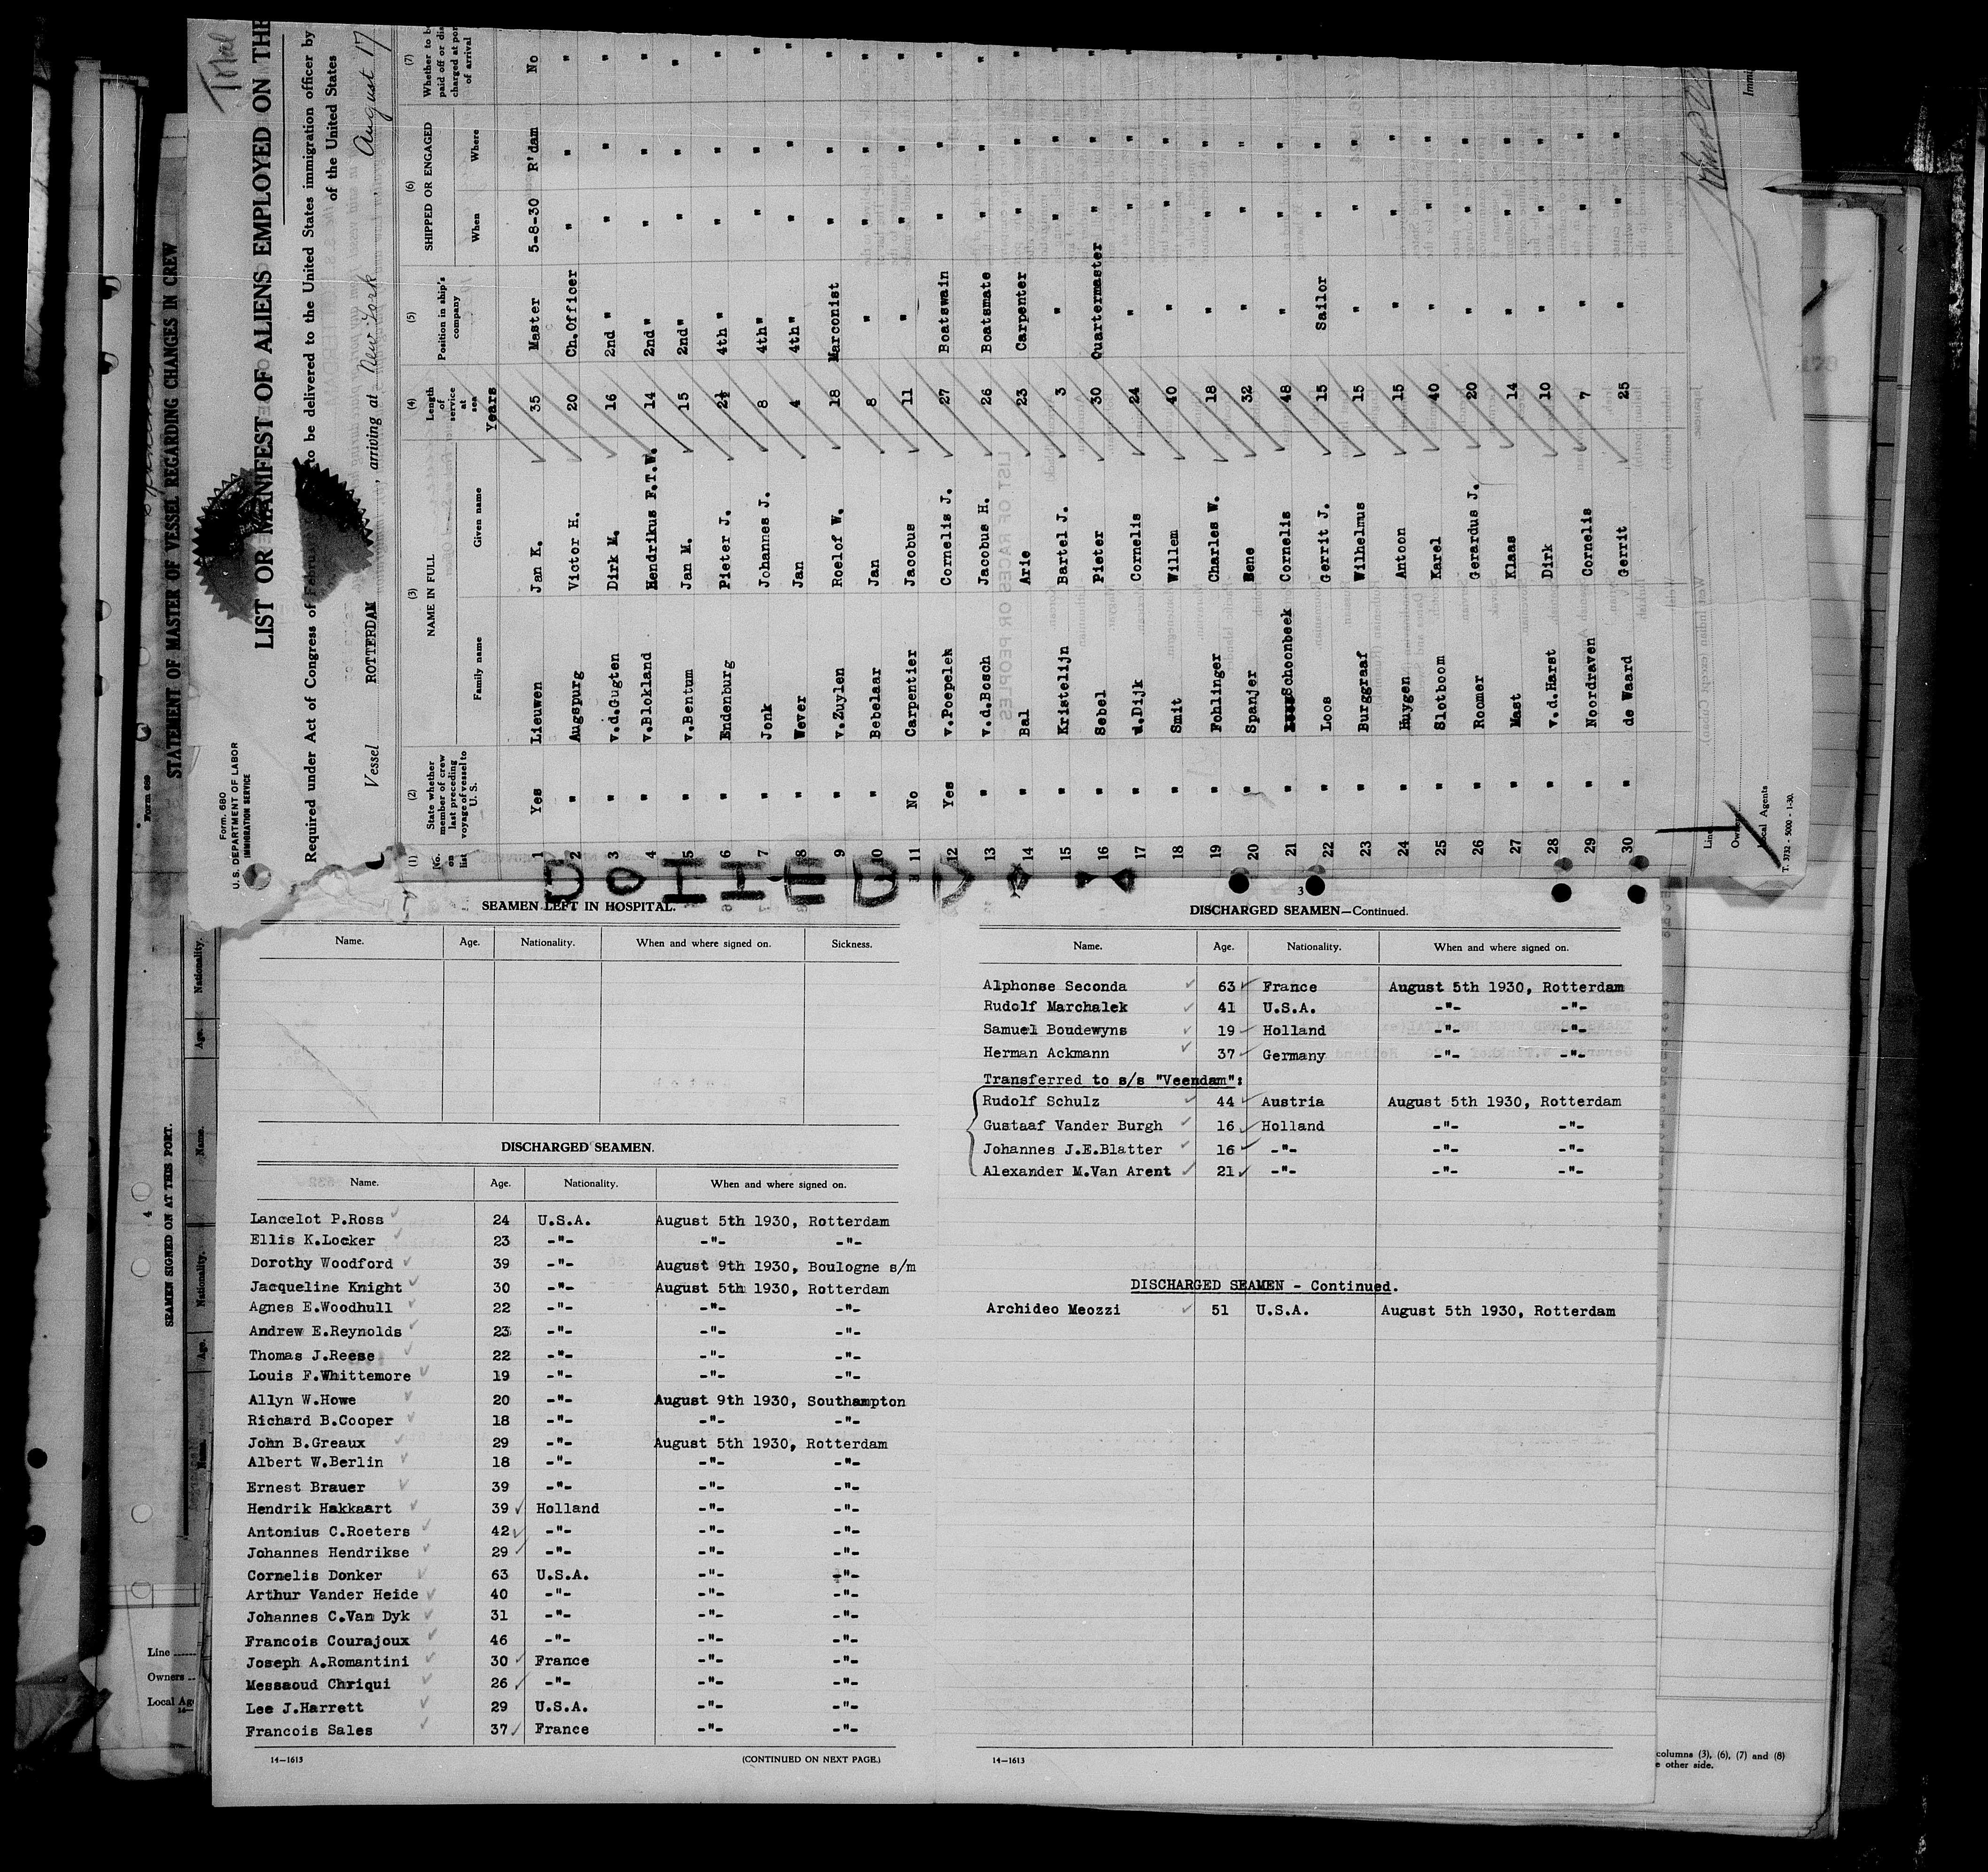 Total
Form. 680
U. S. DEPARTMENT OF LABOR
IMMIGRATION SERVICE
LIST OR MANIFEST OF ALIENS EMPLOYED ON THE
Required under Act of Congress of to be delivered to the United States immigration officer by
of the United States
Vessel ROTTERDAM, arriving at New York, August 17
(1) (2) (3) (4) (5) (6) (7)
No. on list State whether member of crew last preceding voyage of vessel to U. S. NAME IN FULL Length of service at sea Position in ship's company SHIPPED OR ENGAGED Whether to be paid off or dis charged at port of arrival
Family name Given name Years When Where
1 Yes Lieuwen Jan K. 35 Master 5-8-30 R'dam No
2 " Augspurg Victor H. 20 Ch.Officer " " "
3 " v.d.Gugten Dirk M. 16 2nd " " " "
4 " v.Blokland Hendrikus F.T.W. 14 2nd " " " "
5 " v.Bentum Jan M. 15 2nd " " " "
6 " Endenburg Pieter J. 2½ 4th " " " "
7 " Jonk Johannes J. 8 4th " " " "
8 " Wever Jan 4 4th " " " "
9 " v.Zuylen Roelof W. 18 Marconist " " "
10 " Bebelaar Jan 8 " " " "
11 No Carpentier Jacobus 11 " " " "
12 Yes v.Poepelek Cornelis J. 27 Boatswain " " "
13 " v.d.Bosch Jacobus H. 26 Boatsmate " " "
14 " Bal Arie 23 Carpenter " " "
15 " Kristelijn Bartel J. 3 " " " "
16 " Sebel Pieter 30 Quartermaster " " "
17 " v.Dijk Cornelis 24 " " " "
18 " Smit Willem 40 " " "
19 " Fohlinger Charles W. 18 " " "
20 " Spanjer Bene 32 " " " "
21 " Schoonbeek Cornelis 48 " " " "
22 " Loos Gerrit J. 15 Sailor " " "
23 " Burggraaf Wilhelmus 15 " " "
24 " Huygen Antoon 15 " " "
25 " Slotboom Karel 40 " " "
26 " Roomer Gerardus J. 20 " " "
27 " Mast Klaas 14 " " "
28 " v.d.Harst Dirk 10 " " "
29 " Noordraven Cornelis 7 " " "
30 " de Waard Gerrit 25 " " "
Line
Owners
Local Agents
T. 3732 - 5000 - 1-30.
Form 689
STATEMENT OF MASTER OF VESSEL REGARDING CHANGES IN CREW
4
SEAMEN SIGNED ON AT THIS PORT.
Name. Age. Nationality.
Line
Owners
Local Ag
SEAMEN LEFT IN HOSPITAL.
Name. Age. Nationality. When and where signed on. Sickness.
DISCHARGED SEAMEN.
Name. Age. Nationality. When and where signed on.
Lancelot P.Ross 24 U.S.A. August 5th 1930, Rotterdam
Ellis K.Locker 23 -"- -"- -"-
Dorothy Woodford 39 -"- August 9th 1930, Boulogne s/m
Jacqueline Knight 30 -"- August 5th 1930, Rotterdam
Agnes E.Woodhull 22 -"- -"- -"-
Andrew E.Reynolds 23 -"- -"- -"-
Thomas J.Reese 22 -"- -"- -"-
Louis F.Whittemore 19 -"- -"- -"-
Allyn W.Howe 20 -"- August 9th 1930, Southampton
Richard B.Cooper 18 -"- -"- -"-
John B.Greaux 29 -"- August 5th 1930, Rotterdam
Albert W.Berlin 18 -"- -"- -"-
Ernest Brauer 39 -"- -"- -"-
Hendrik Hakkaart 39 Holland -"- -"-
Antonius C.Roeters 42 -"- -"- -"-
Johannes Hendrikse 29 -"- -"- -"-
Cornelis Donker 63 U.S.A. -"- -"-
Arthur Vander Heide 40 -"- -"- -"-
Johannes C.Van Dyk 31 -"- -"- -"-
Francois Courajoux 46 -"- -"- -"-
Joseph A.Romantini 30 France -"- -"-
Messaoud Chriqui 26 -"- -"- -"-
Lee J.Harrett 29 U.S.A. -"- -"-
Francois Sales 37 France -"- -"-
14—1613 (CONTINUED ON NEXT PAGE.)
3
DISCHARGED SEAMEN—Continued.
Name. Age. Nationality. When and where signed on.
Alphonse Seconda 63 France August 5th 1930, Rotterdam
Rudolf Marchalek 41 U.S.A. -"- -"-
Samuel Boudewyns 19 Holland -"- -"-
Herman Ackmann 37 Germany -"- -"-
Transferred to s/s "Veendam":
Rudolf Schulz 44 Austria August 5th 1930, Rotterdam
Gustaaf Vander Burgh 16 Holland -"- -"-
Johannes J.E.Blatter 16 -"- -"- -"-
Alexander M.Van Arent 21 -"- -"- -"-
DISCHARGED SEAMEN - Continued.
Archideo Meozzi 51 U.S.A. August 5th 1930, Rotterdam
14—1613
columns (3), (6), (7) and (8)
e other side.